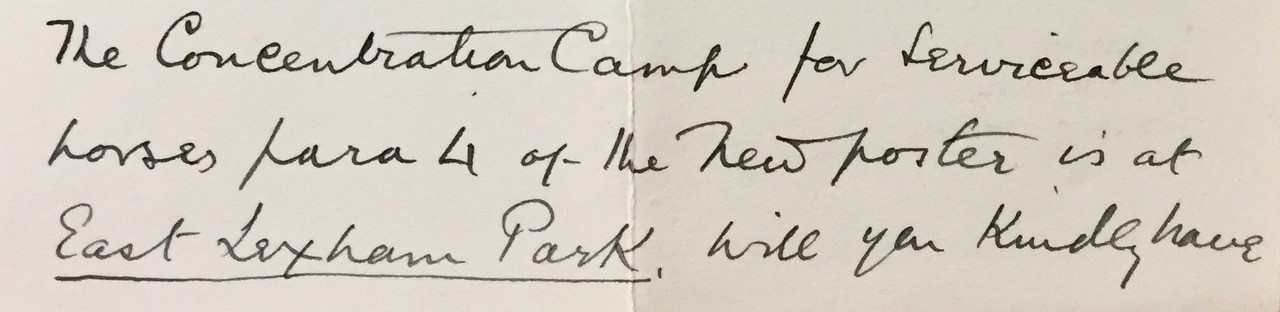 The Concentration Camp for Serviceable
horses para 4 of the New poster is at
East Lexham Park. Will you Kindly have